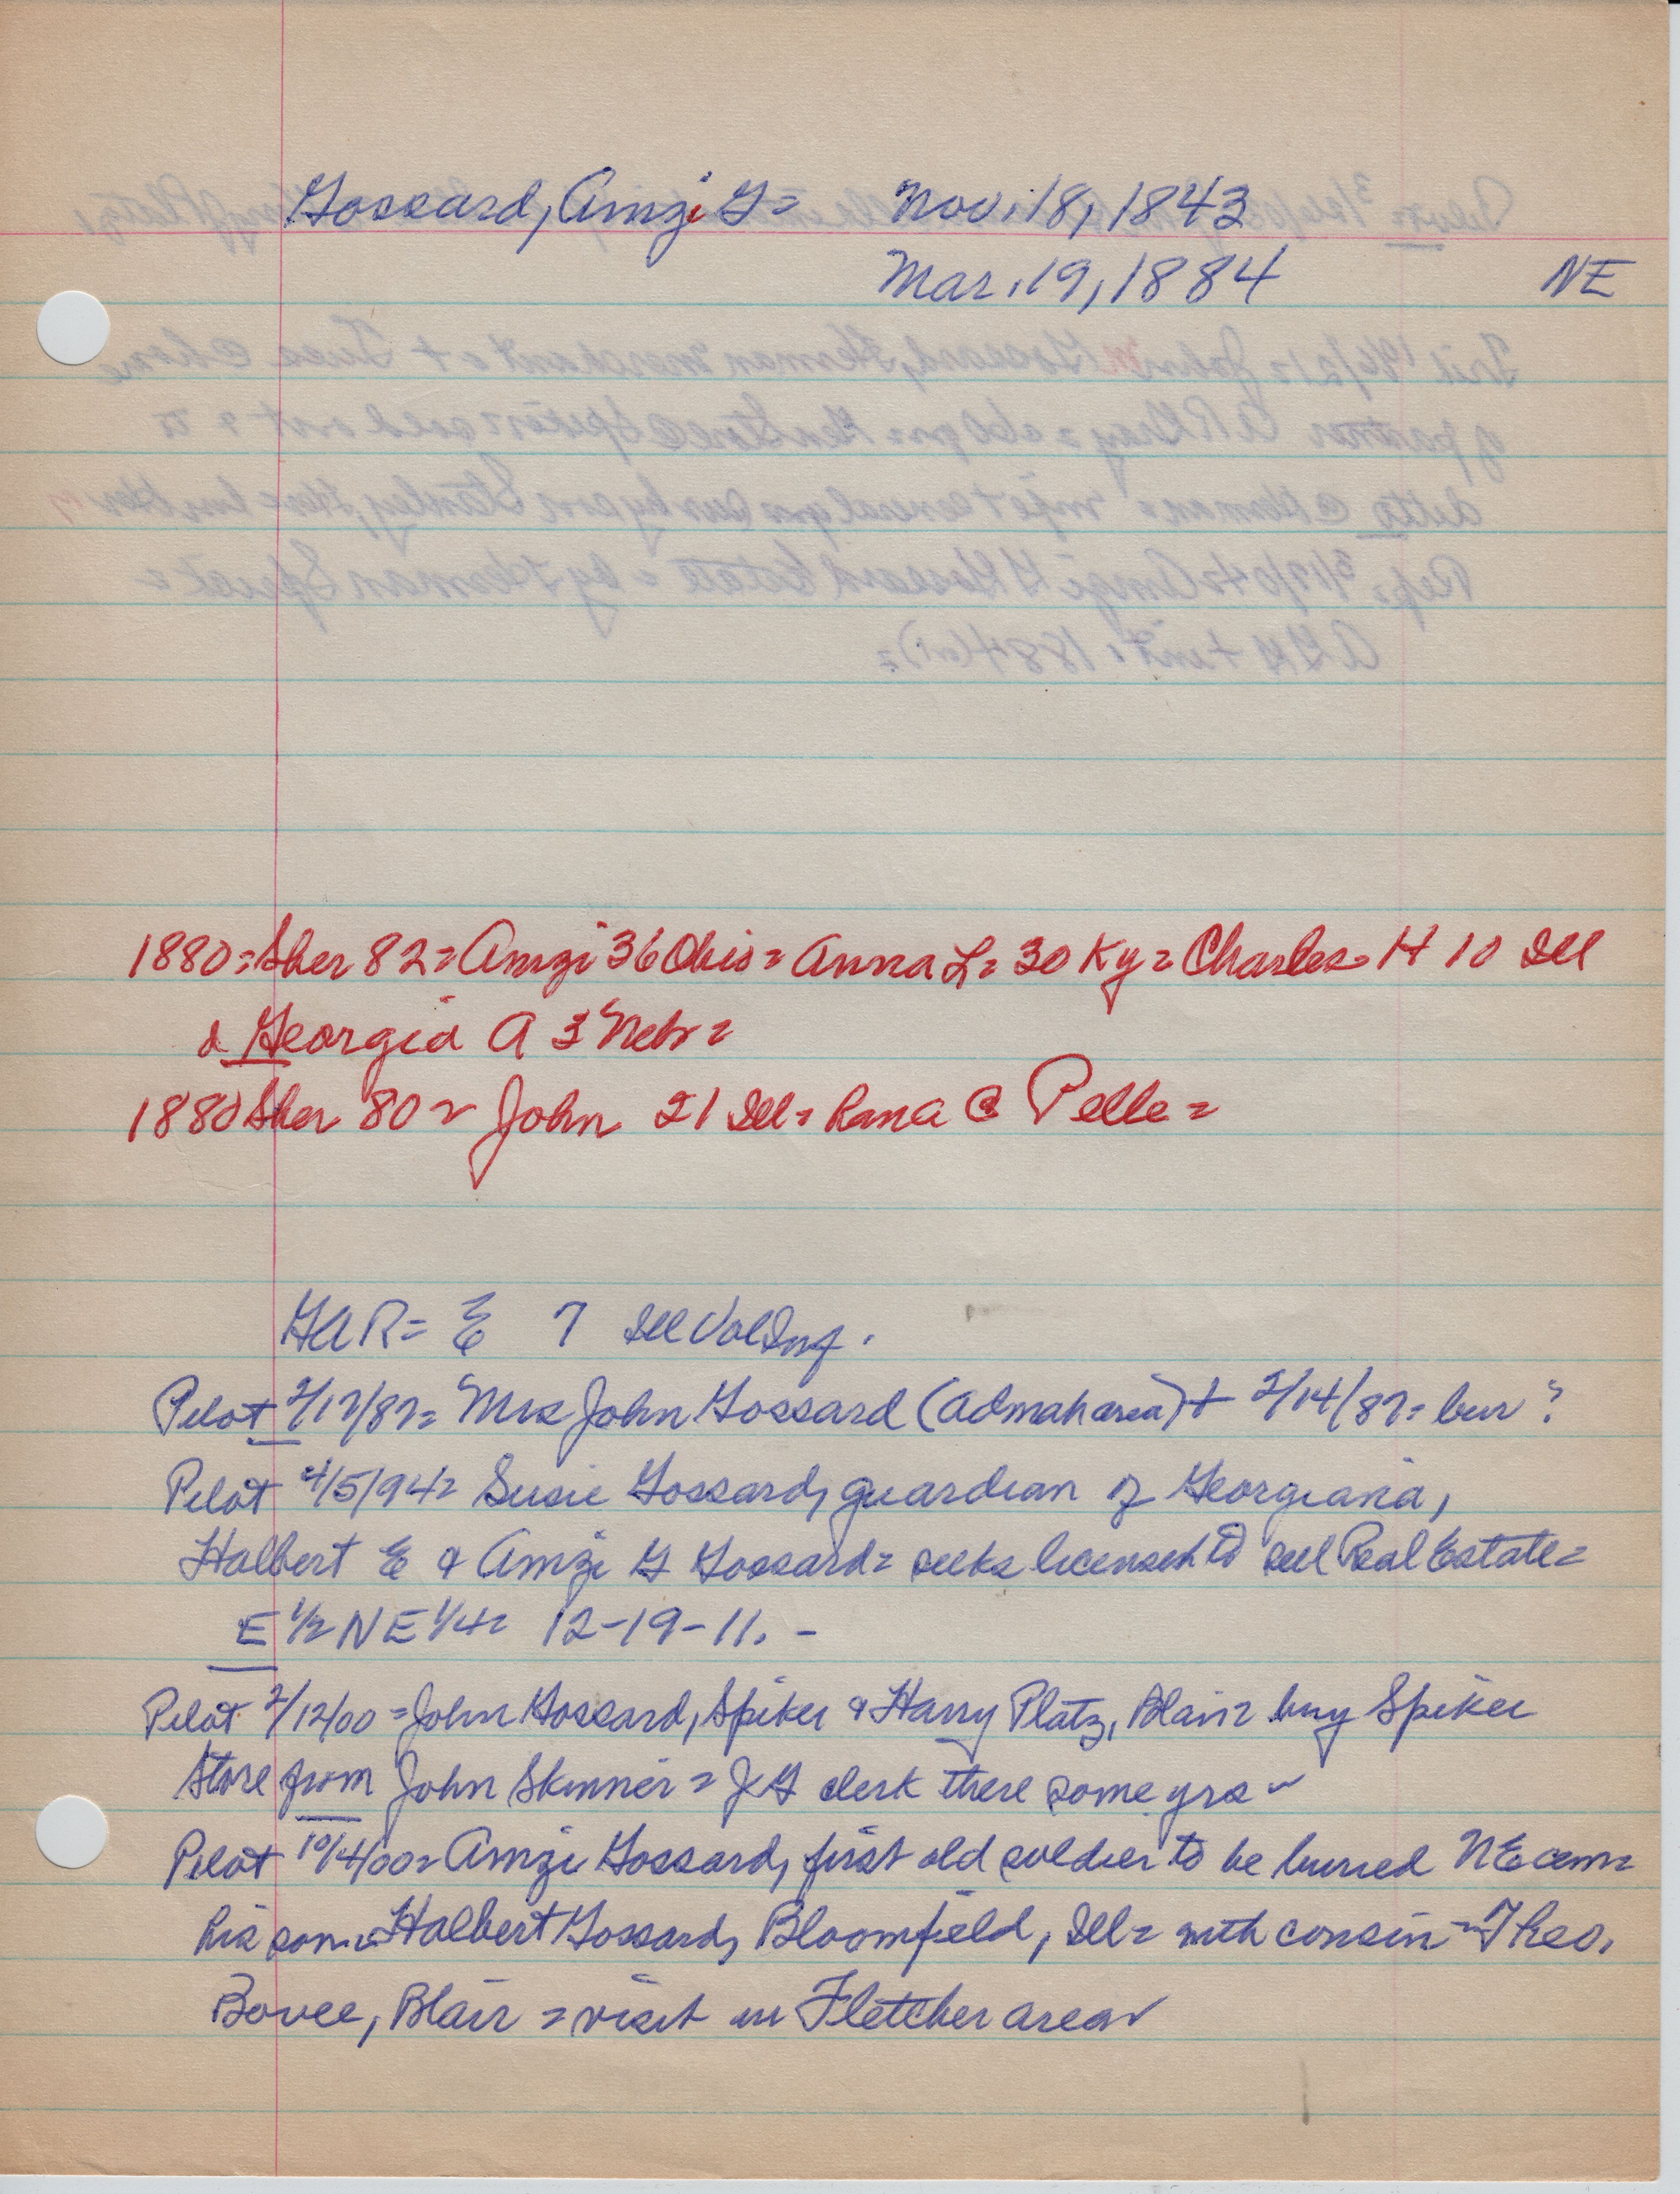 Gossard, Amzi G = Nov. 18, 1843
Mar. 19, 1884 NE
1880 = Sher 82 = Amzi 36 Ohio = Anna L = 30 Ky = Charles H 10 Ill
& Georgia A 3 Nebr =
1880 Sher 80 = John 21 Ill = @ Pelle =
GAR = E 7 Ill Vol Inf.
Pilot 2/17/87 = Mrs John Gossard (Admah area) + 2/14/87 = bur ?
Pilot 4/5/94 = Susie Gossard, guardian of Georgiana,
Halbert E & Amzi G Gossard = seeks license to sell Real Estate =
E 1/2 NE 1/4 = 12-19-11. -
Pilot 2/12/00 = John Gossard, Spiker & Harry Platz, Blair = buy Spiker
Store from John Skinner = JG clerk there some yrs
Pilot 10/4/00 = Amzi Gossard, first old soldier to be buried NE cem =
his son = Halbert Gossard, Bloomfield, Ill = with cousin = Theo.
Bovee, Blair = visit in Fletcher area